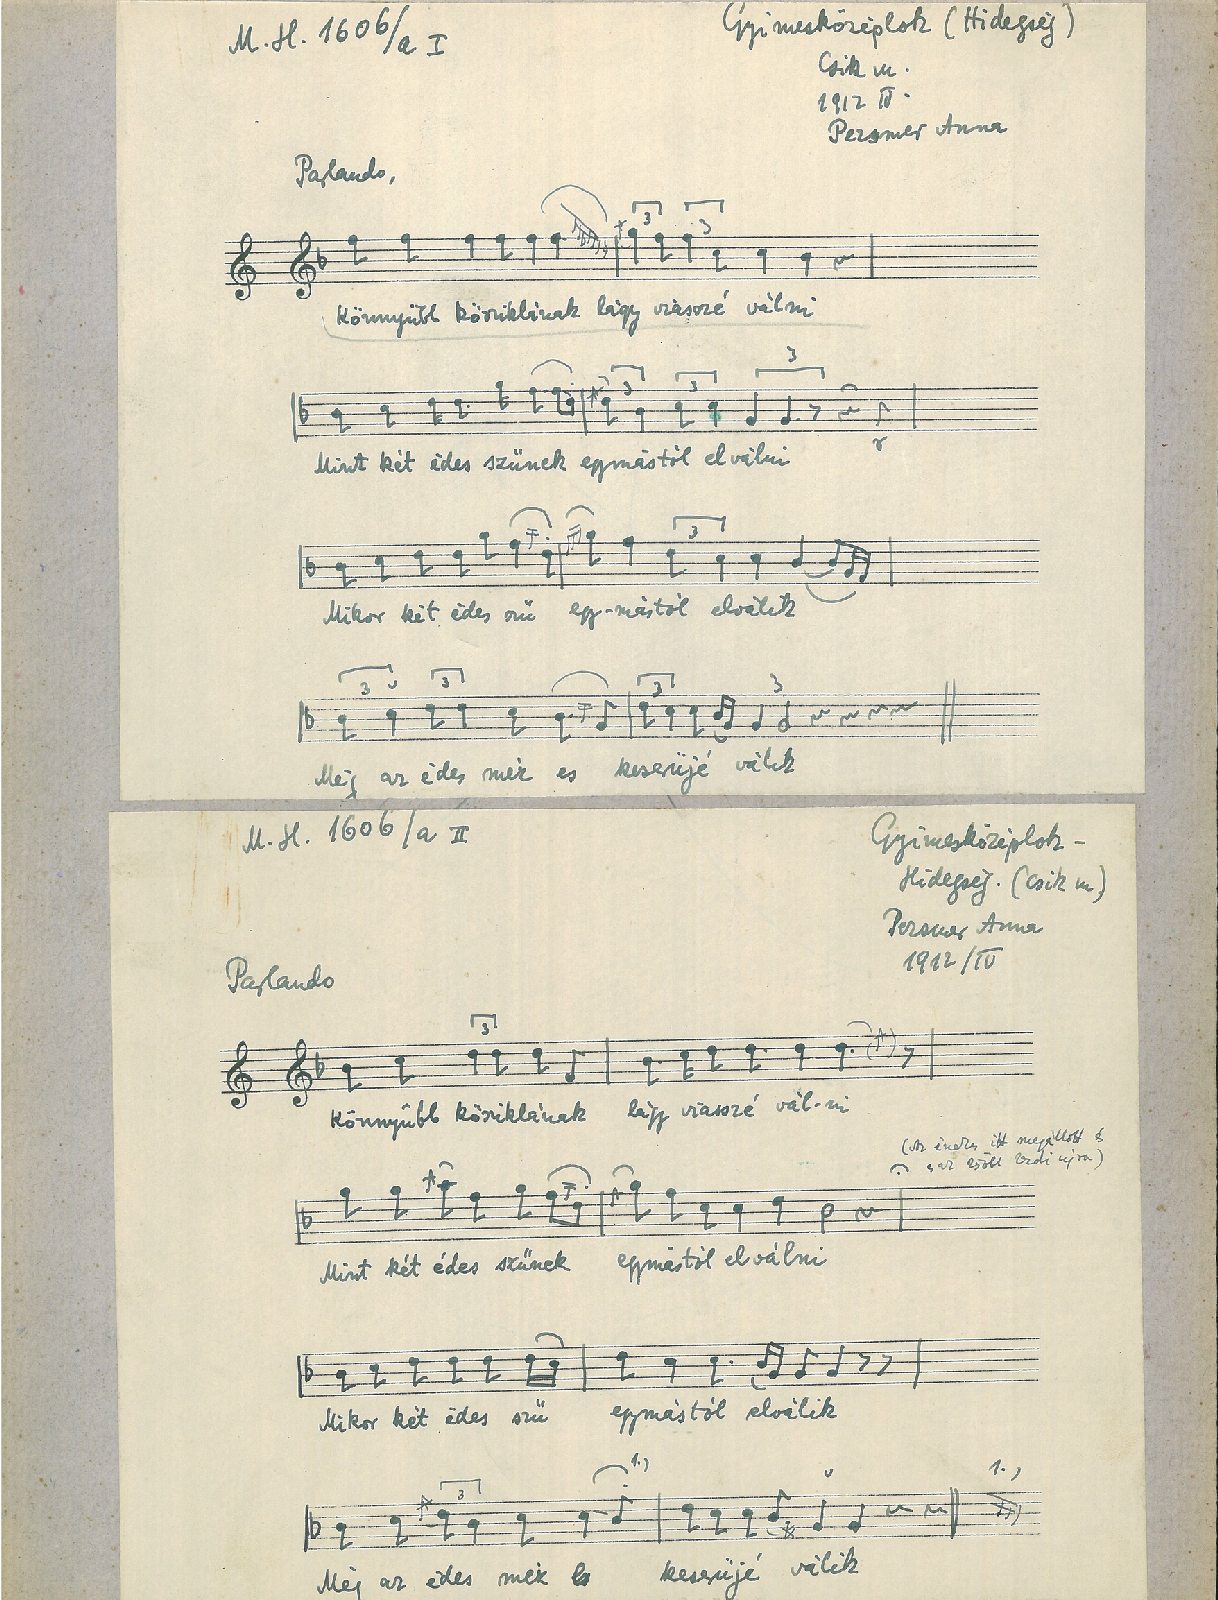 M.H. 1606/a I
Gyimesközéplok (Hidegség)
Csik m.
1912 IV.
Perszmer Anna
Parlando,
Könnyübb kösziklának lágy viasszé válni
Mint két édes szünek egymástól elválni
Mikor két édes szü egy-mástól elválik
Még az édes méz es keserüjé válik
M.H. 1606/a II
Gyimesközéplok-
Hidegség. (Csik m)
Anna
1912/IV
Parlando
3
Könnyübb kösziklának lágy viasszé vál-ni
(Az énekes itt megállott s
újra)
Mint két édes szünek egymástól elválni
Mikor két édes szü egymástól elválik
Még az édes méz es keserüjé válik